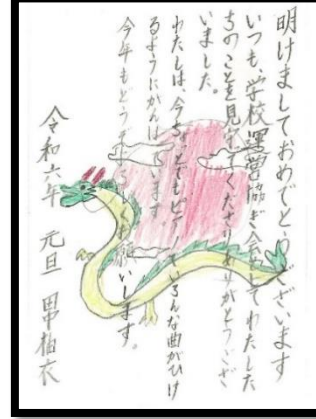 明けましておめでとうございます
いつも、学校運営協ぎ会としてわたした
ちのことを見守ってくださりありがとうござ
いました。
わたしは、今ちょっとでもピアノでいろんな曲がひけ
るようにがんばっています
今年もどうぞよろしくお願いします。
令和六年 元旦